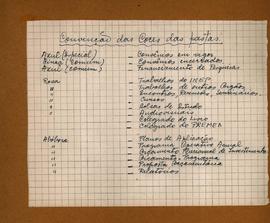 Convenção das Cores das pastas.
Azul (Especial) Convênios em vigor
(Comum) Convênios encerrados
Azul (Comum) Financiamento de Pesquisas
Rosa Trabalhos do INEP
" Trabalhos de outros Órgãos
" Encontros, Reuniões, Seminários
" Cursos
" Bolsas de Estudo
" Audiovisuais
" Colegiado do Livro
" Colegiado do PREMEM
Planos de Aplicação
" Programa Operativo Anual
" Orçamento Plurianual de Investimentos
" Orçamento Programa
" Proposta Orçamentária
" Relatórios